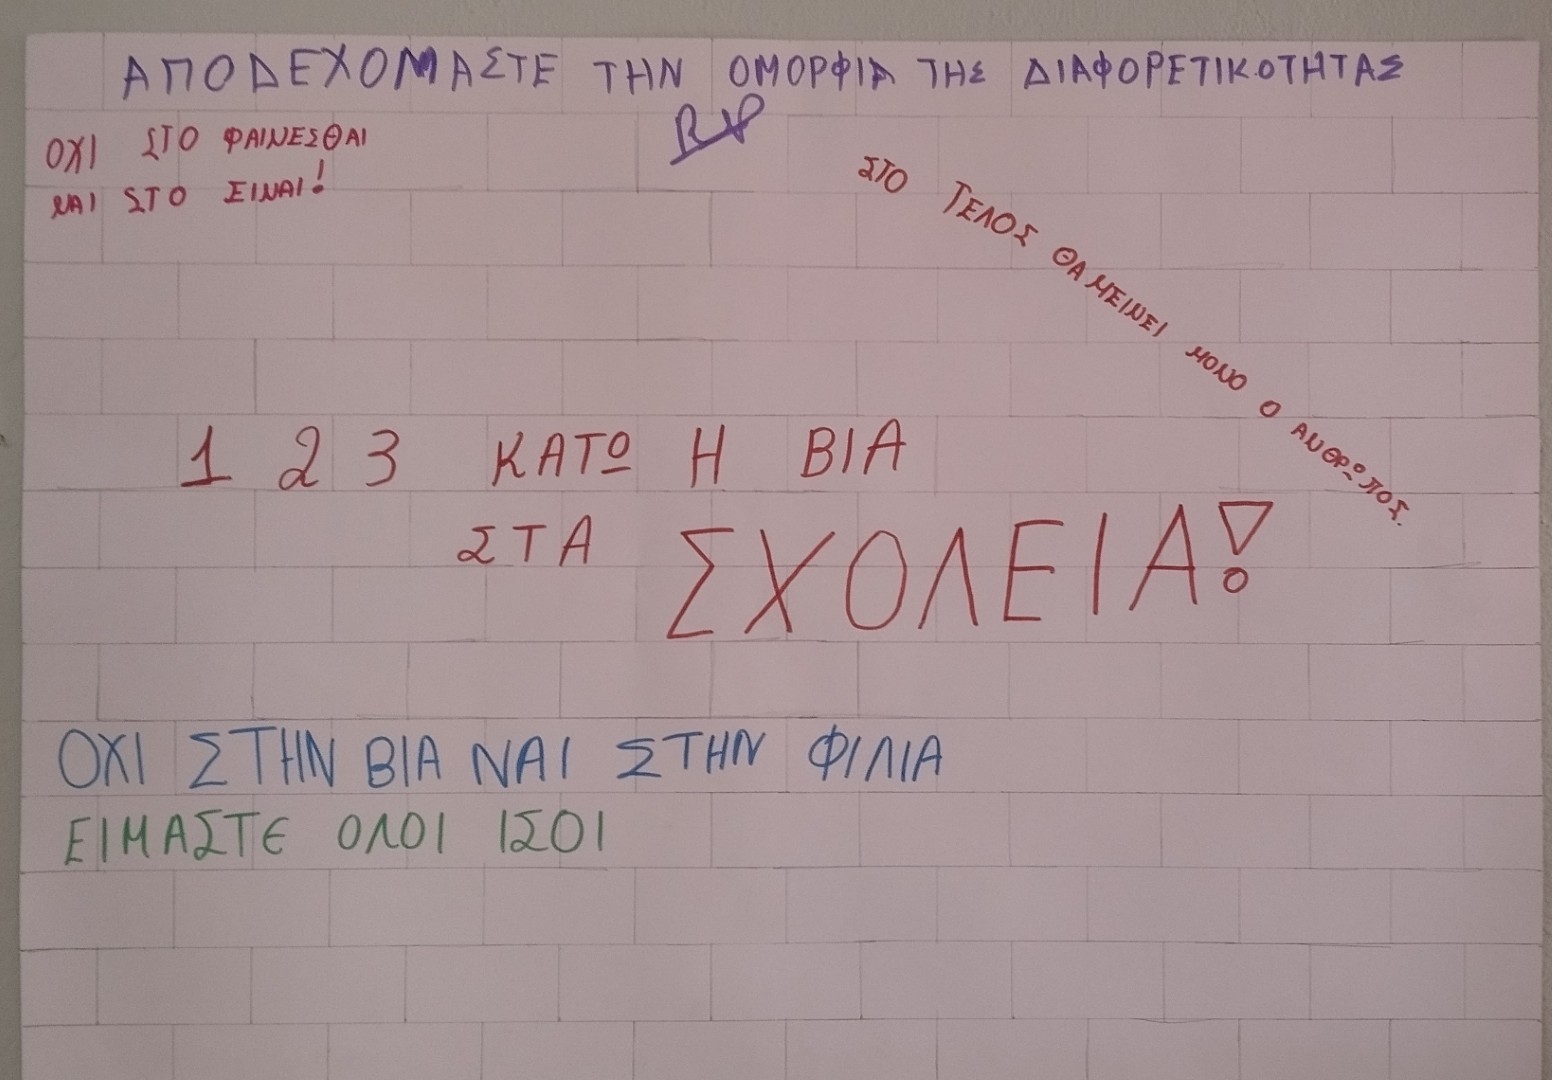 ΑΠΟΔΕΧΟΜΑΣΤΕ ΤΗΝ ΟΜΟΡΦΙΑ ΤΗΣ ΔΙΑΦΟΡΕΤΙΚΟΤΗΤΑΣ
ΟΧΙ ΣΤΟ ΦΑΙΝΕΣΘΑΙ
ΝΑΙ ΣΤΟ ΕΙΝΑΙ!
ΣΤΟ ΤΕΛΟΣ ΘΑ ΜΕΙΝΕΙ ΜΟΝΟ Ο ΑΝΘΡΩΠΟΣ.
1 2 3 ΚΑΤΩ Η ΒΙΑ
ΣΤΑ ΣΧΟΛΕΙΑ!
ΟΧΙ ΣΤΗΝ ΒΙΑ ΝΑΙ ΣΤΗΝ ΦΙΛΙΑ
ΕΙΜΑΣΤΕ ΟΛΟΙ ΙΣΟΙ